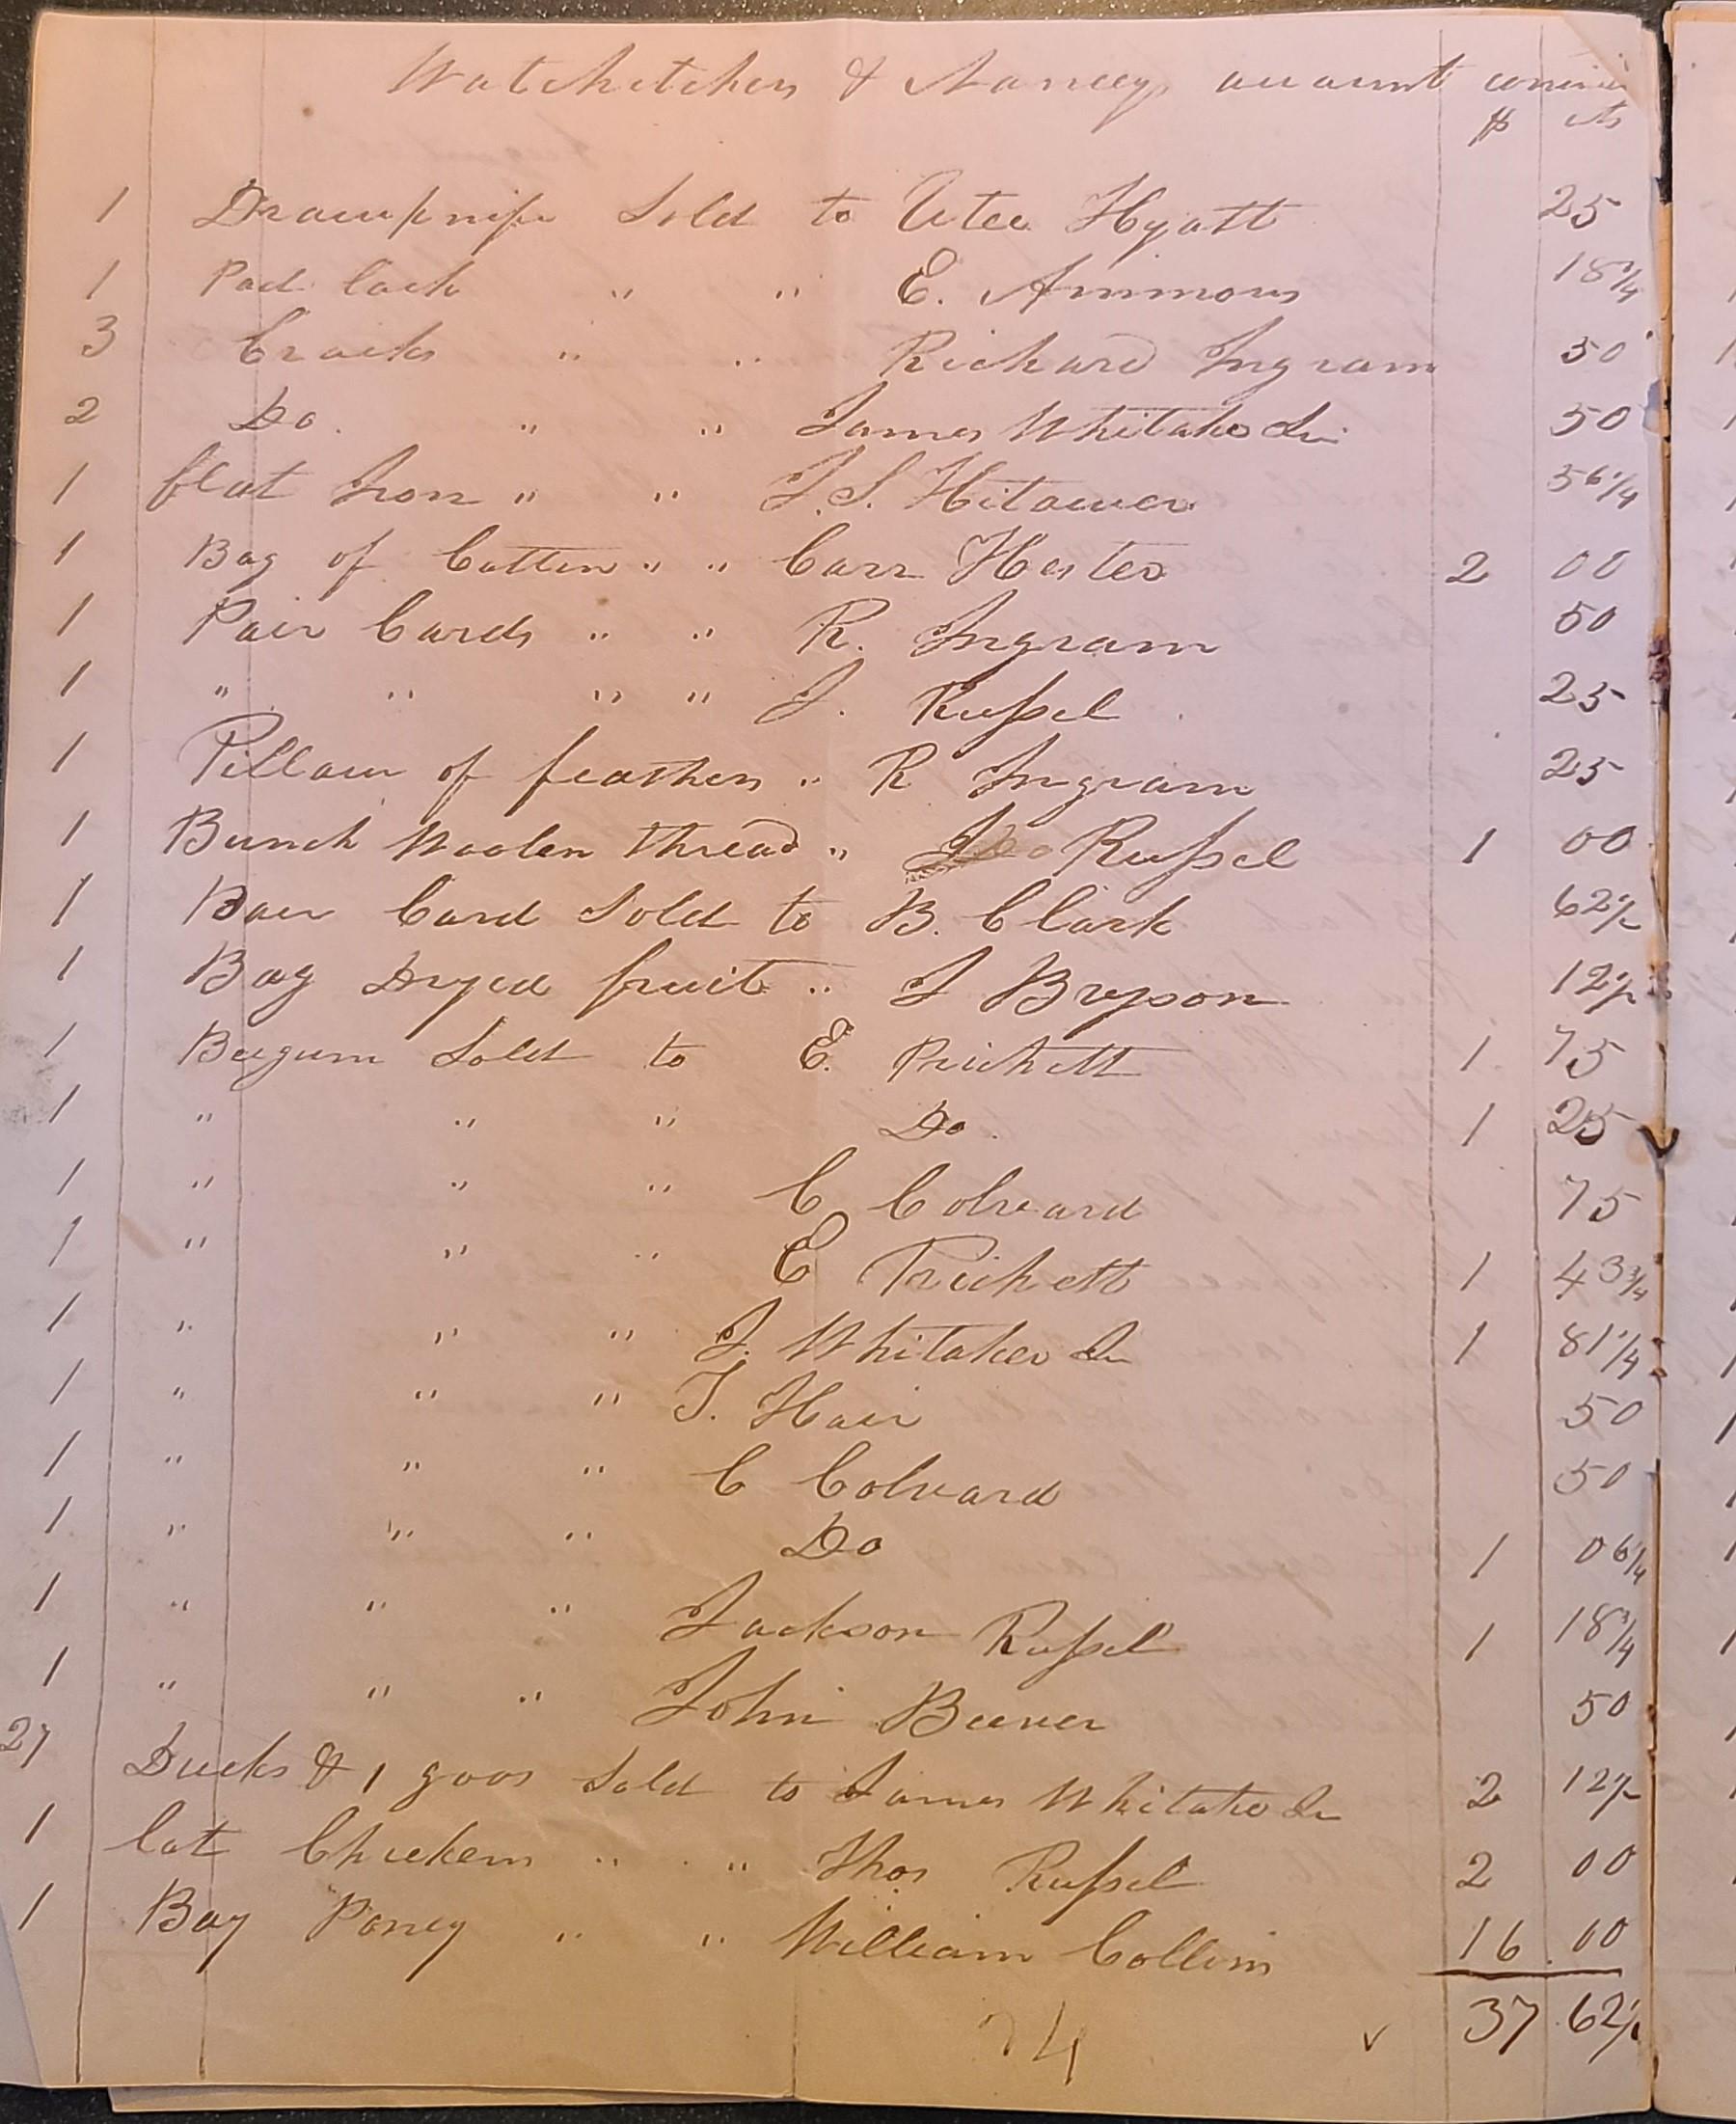 Watchitcher & Nanceys account
$ cts
1 Drawknife Sold to Utee Hyatt 25
1 Pad lock " " E. Ammons 18 3/4
3 Crocks " " Richard Ingram 50
2 Do. " " James Whitaker Sr 50
1 flat Iron " " J. S. 56 1/4
1 Bag of Cotten " " Carr Hester 2 00
1 Pair Cards " " R. Ingram 50
1 " " " " J. Russel 25
1 Pillow of feathers " R Ingram 25
1 Bunch Woolen thread " Russel 1 00
1 Pair Card Sold to B. Clark 62 1/2
1 Bag Dryed fruit " J Bryson 12 1/2
1 Beegum Sold to E. Prichett 1 75
1 " " " Do. 1 25
1 " " " C Colvard 75
1 " " " E Prichett 1 43 3/4
1 " " " J. Whitaker Sr 1 81 1/4
1 " " " T. Hair 50
1 " " " C Colvard 50
1 " " " Do 1 06 1/4
1 " " " Jackson Russel 1 18 3/4
1 " " " John Beever 50
27 Ducks & 1 goos Sold to James Whitaker Sr 2 12 1/2
1 Lot Chickens " " Thos Russel 2 00
1 Bay Poney " " William Collins 16.00
74 v 37 62 1/2